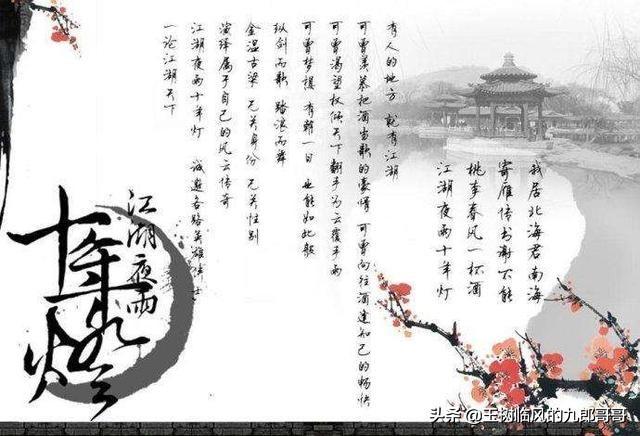 我居北海君南海
寄雁传书谢不能
桃李春风一杯酒
江湖夜雨十年灯
有人的地方 就有江湖
可曾羡慕把酒当歌的豪情 可曾向往酒逢知己的畅快
可曾渴望权倾天下翻手为云覆手为雨
可曾梦想 有朝一日 也能如此般
纵剑而歌 踏浪而舞
金温古梁 无关身份 无关性别
演绎属于自己的风云传奇
江湖夜雨十年灯 诚邀各路英雄侠士
一论江湖天下
江湖夜雨
十年灯
头条 @玉树临风的九郎哥哥